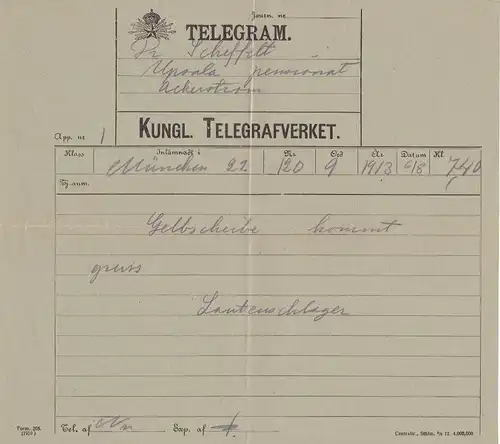 Journ. nr
TELEGRAM.
Dr Scheffelt
Upsala pensionat
Ackerström
App. nr 1
KUNGL. TELEGRAFVERKET.
Klass Inlämnadt i Nr Ord År Datum Kl.
München 22 120 9 1913 6/8 740
Tj.-anm.
Gelbscheibe kommt
gruss
Lautenschlager
Form. 205.
Tel. af Exp. af
Centraltr., Sthlm.